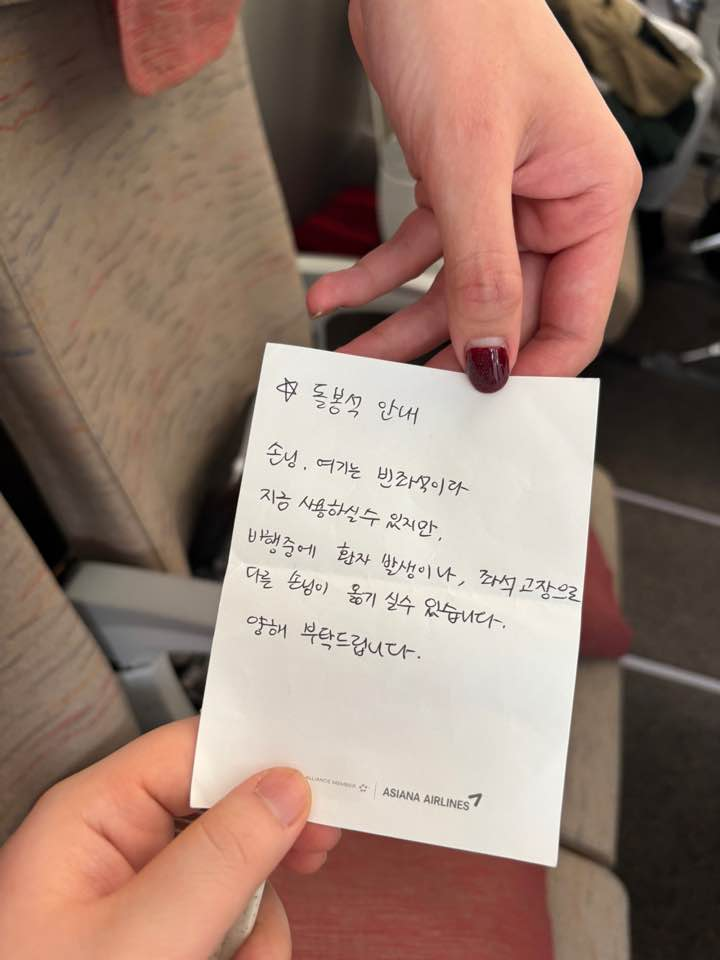 ☆ 돌봉석 안내
손님, 여기는 빈좌석이라
지금 사용하실수 있지만,
비행중에 환자 발생이나, 좌석고장으로
다른 손님이 옮기실수 있습니다.
양해 부탁드립니다.
ALLIANCE MEMBER
ASIANA AIRLINES